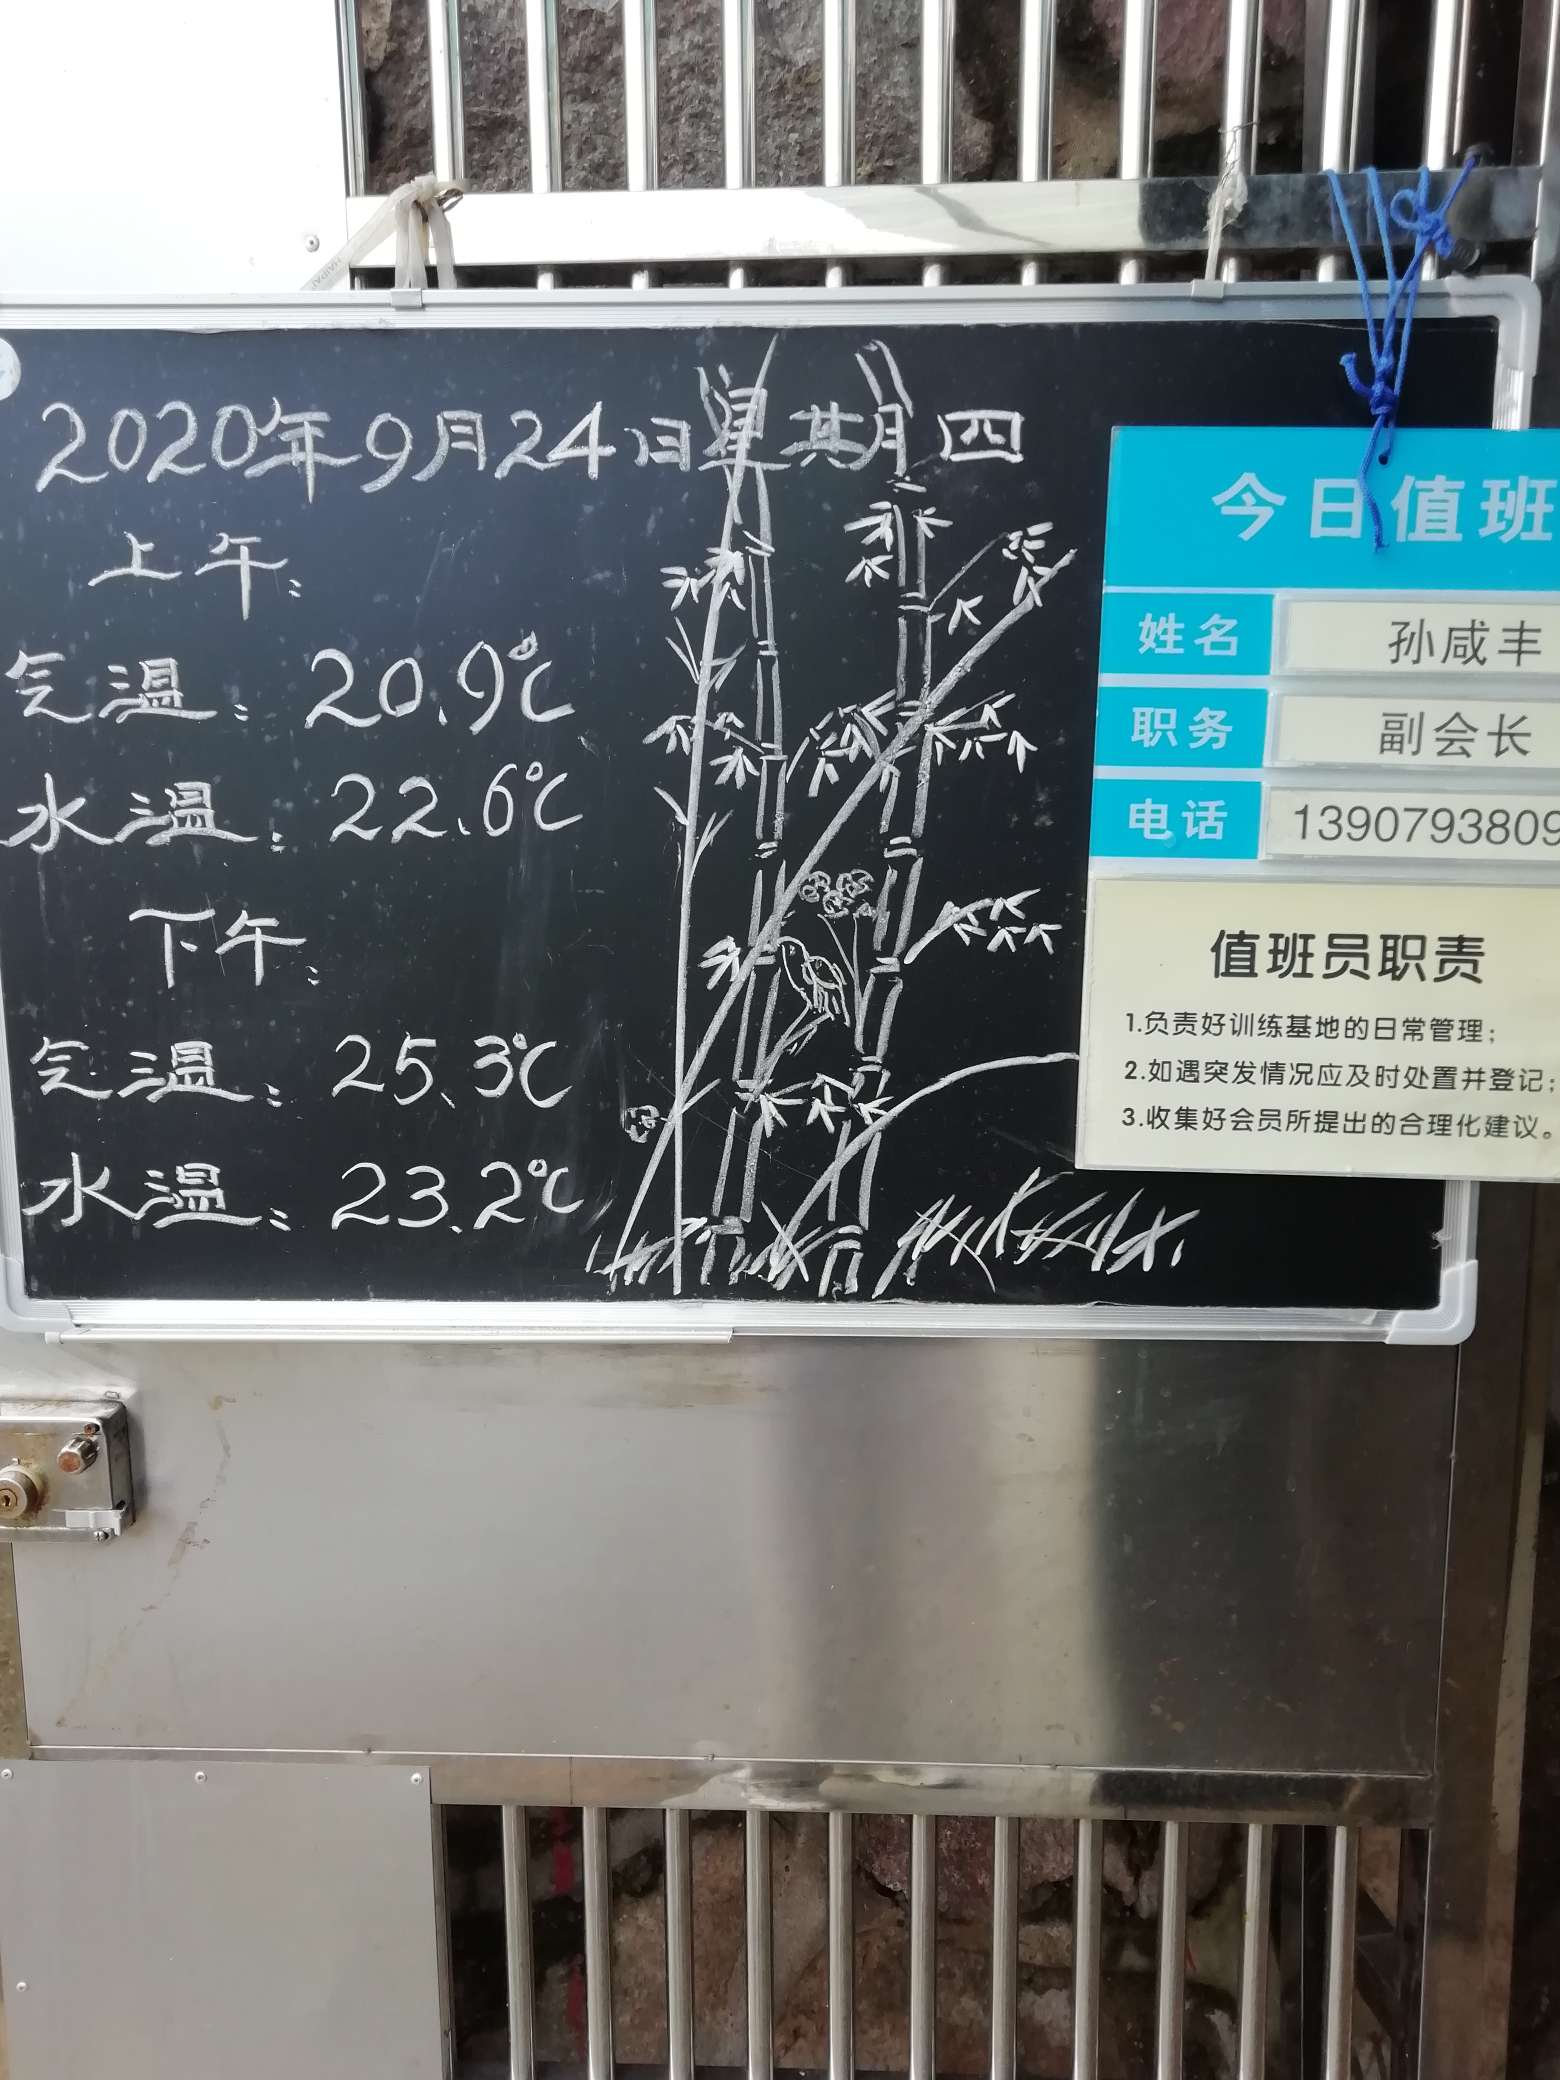 2020年9月24日星期四
上午:
气温:20.9℃
水温:22.6℃
下午:
气温:25.3℃
水温:23.2℃
今日值班
姓名 孙咸丰
职务 副会长
电话 1390793809
值班员职责
1.负责好训练基地的日常管理;
2.如遇突发情况应及时处置并登记;
3.收集好会员所提出的合理化建议。